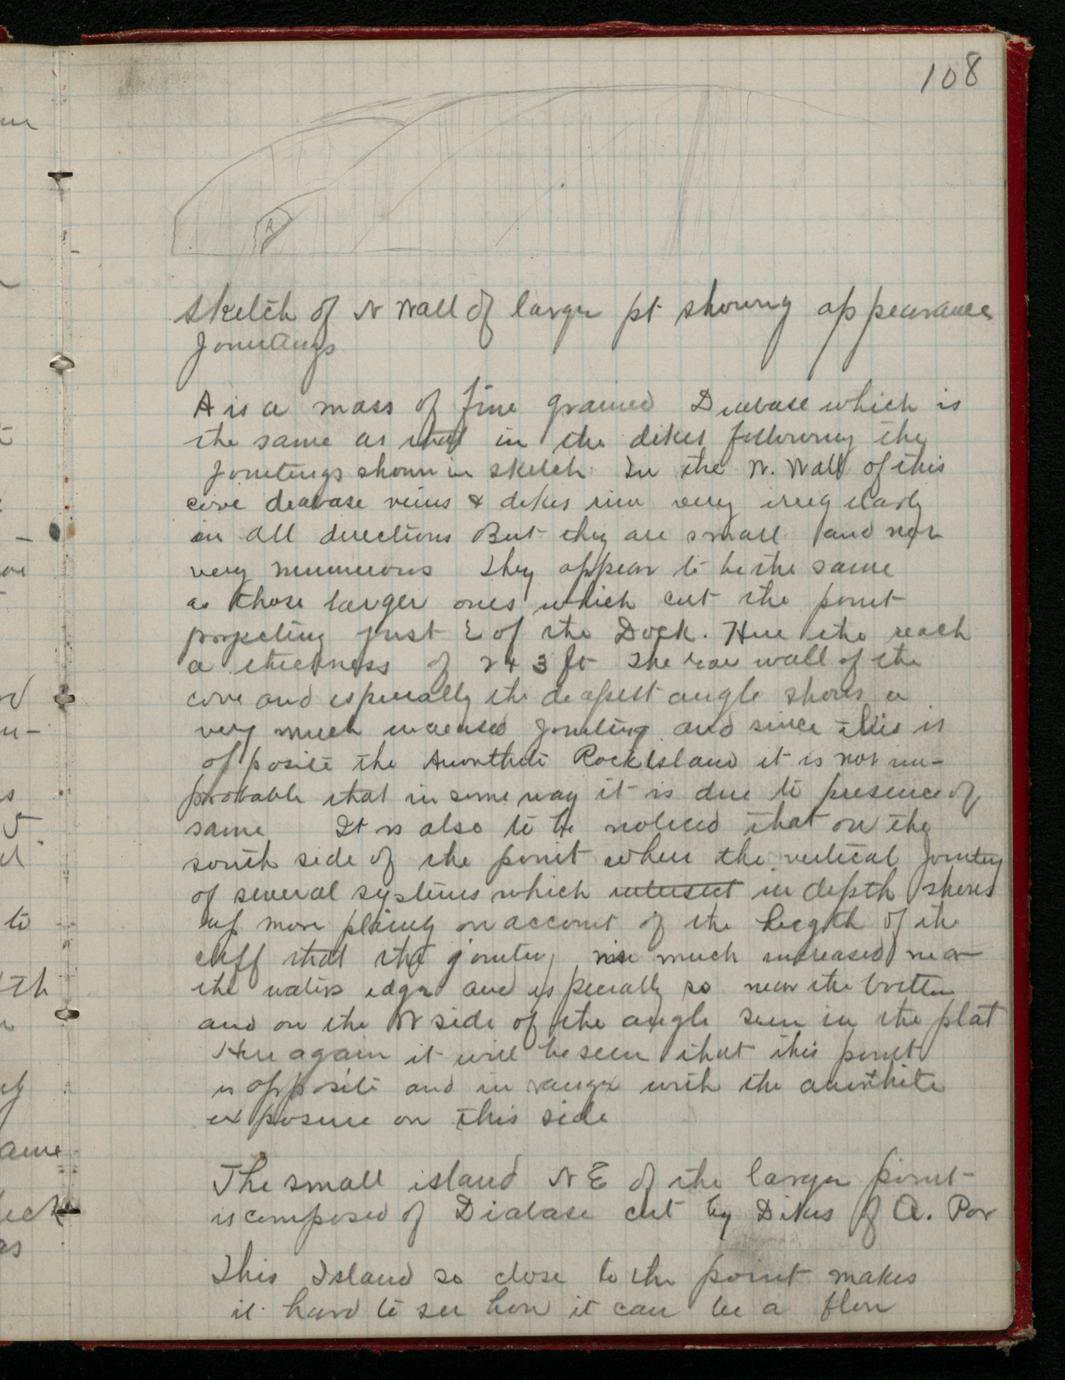 108
A
Sketch of N Wall of larger pt showing appearance
Jointings
A is a mass of fine grained Diabase which is
the same as that in the dikes following the
Jointings shown in sketch. In the N. Wall of this
cove deabase veins & dikes run very irregularly
in all directions But they are small and not
very numerous They appear to be the same
as those larger ones which cut the point
projecting just E of the Dock. Here the reach
a thickness of 2 & 3 ft The rear wall of the
cove and especially the deapest angle shows a
very much increased Jointing and since this is
opposite the Anorthite Rock Island it is not im-
probable that in some way it is due to presence of
same It is also to be noticed that on the
south side of the point where the vertical Jointing
of several systems which intersect in depth shows
up more plainly on account of the heigth of the
cliff that the jointing is much increased near
the waters edge and especially so near the bottom
and on the N side of the angle seen in the plat
Here again it will be seen that this point
is opposite and in range with the anorthite
exposure on this side
The small island N E of the larger point
is composed of Diabase cut by Dikes of A. Por
This Island so close to the point makes
it hard to see how it can be a flow